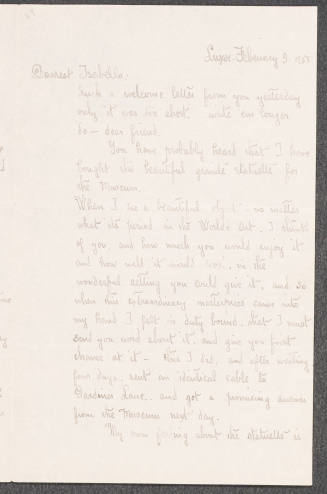 Luxor February 9. 19
Dearest Isabella.
Such a welcome letter from you yesterday
only it was too short. write me longer
do - dear friend.
You have probably heard that I have
bought the beautiful granite statuette for
the Museum.
When I see a beautiful object - no matter
what its period in the World's Art, I think
of you, and how much you would enjoy it
and how well it would look, in the
wonderful setting you could give it, and so
when this extraordinary masterpiece came into
my hand I felt in duty bound, that I must
send you word about it, and give you first
chance at it - this I did, and after waiting
four days, sent an identical cable to
Gardiner Lane, and got a promising answer
from the Museum next day.
My own feeling about the statuette is